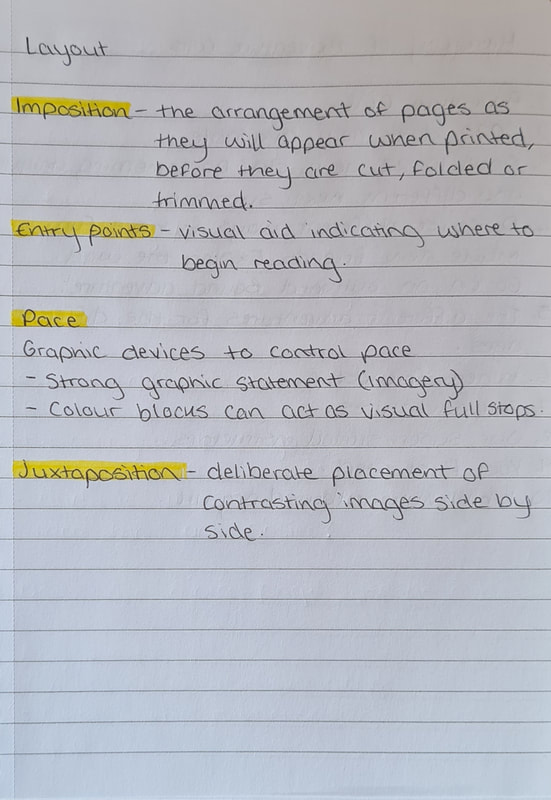 Layout
Imposition - the arrangement of pages as
they will appear when printed,
before they are cut, folded or
trimmed.
Entry points - visual aid indicating where to
begin reading.
Pace
Graphic devices to control pace
- Strong graphic statement (imagery)
- Colour blocks can act as visual full stops.
Juxtaposition - deliberate placement of
contrasting images side by
side.